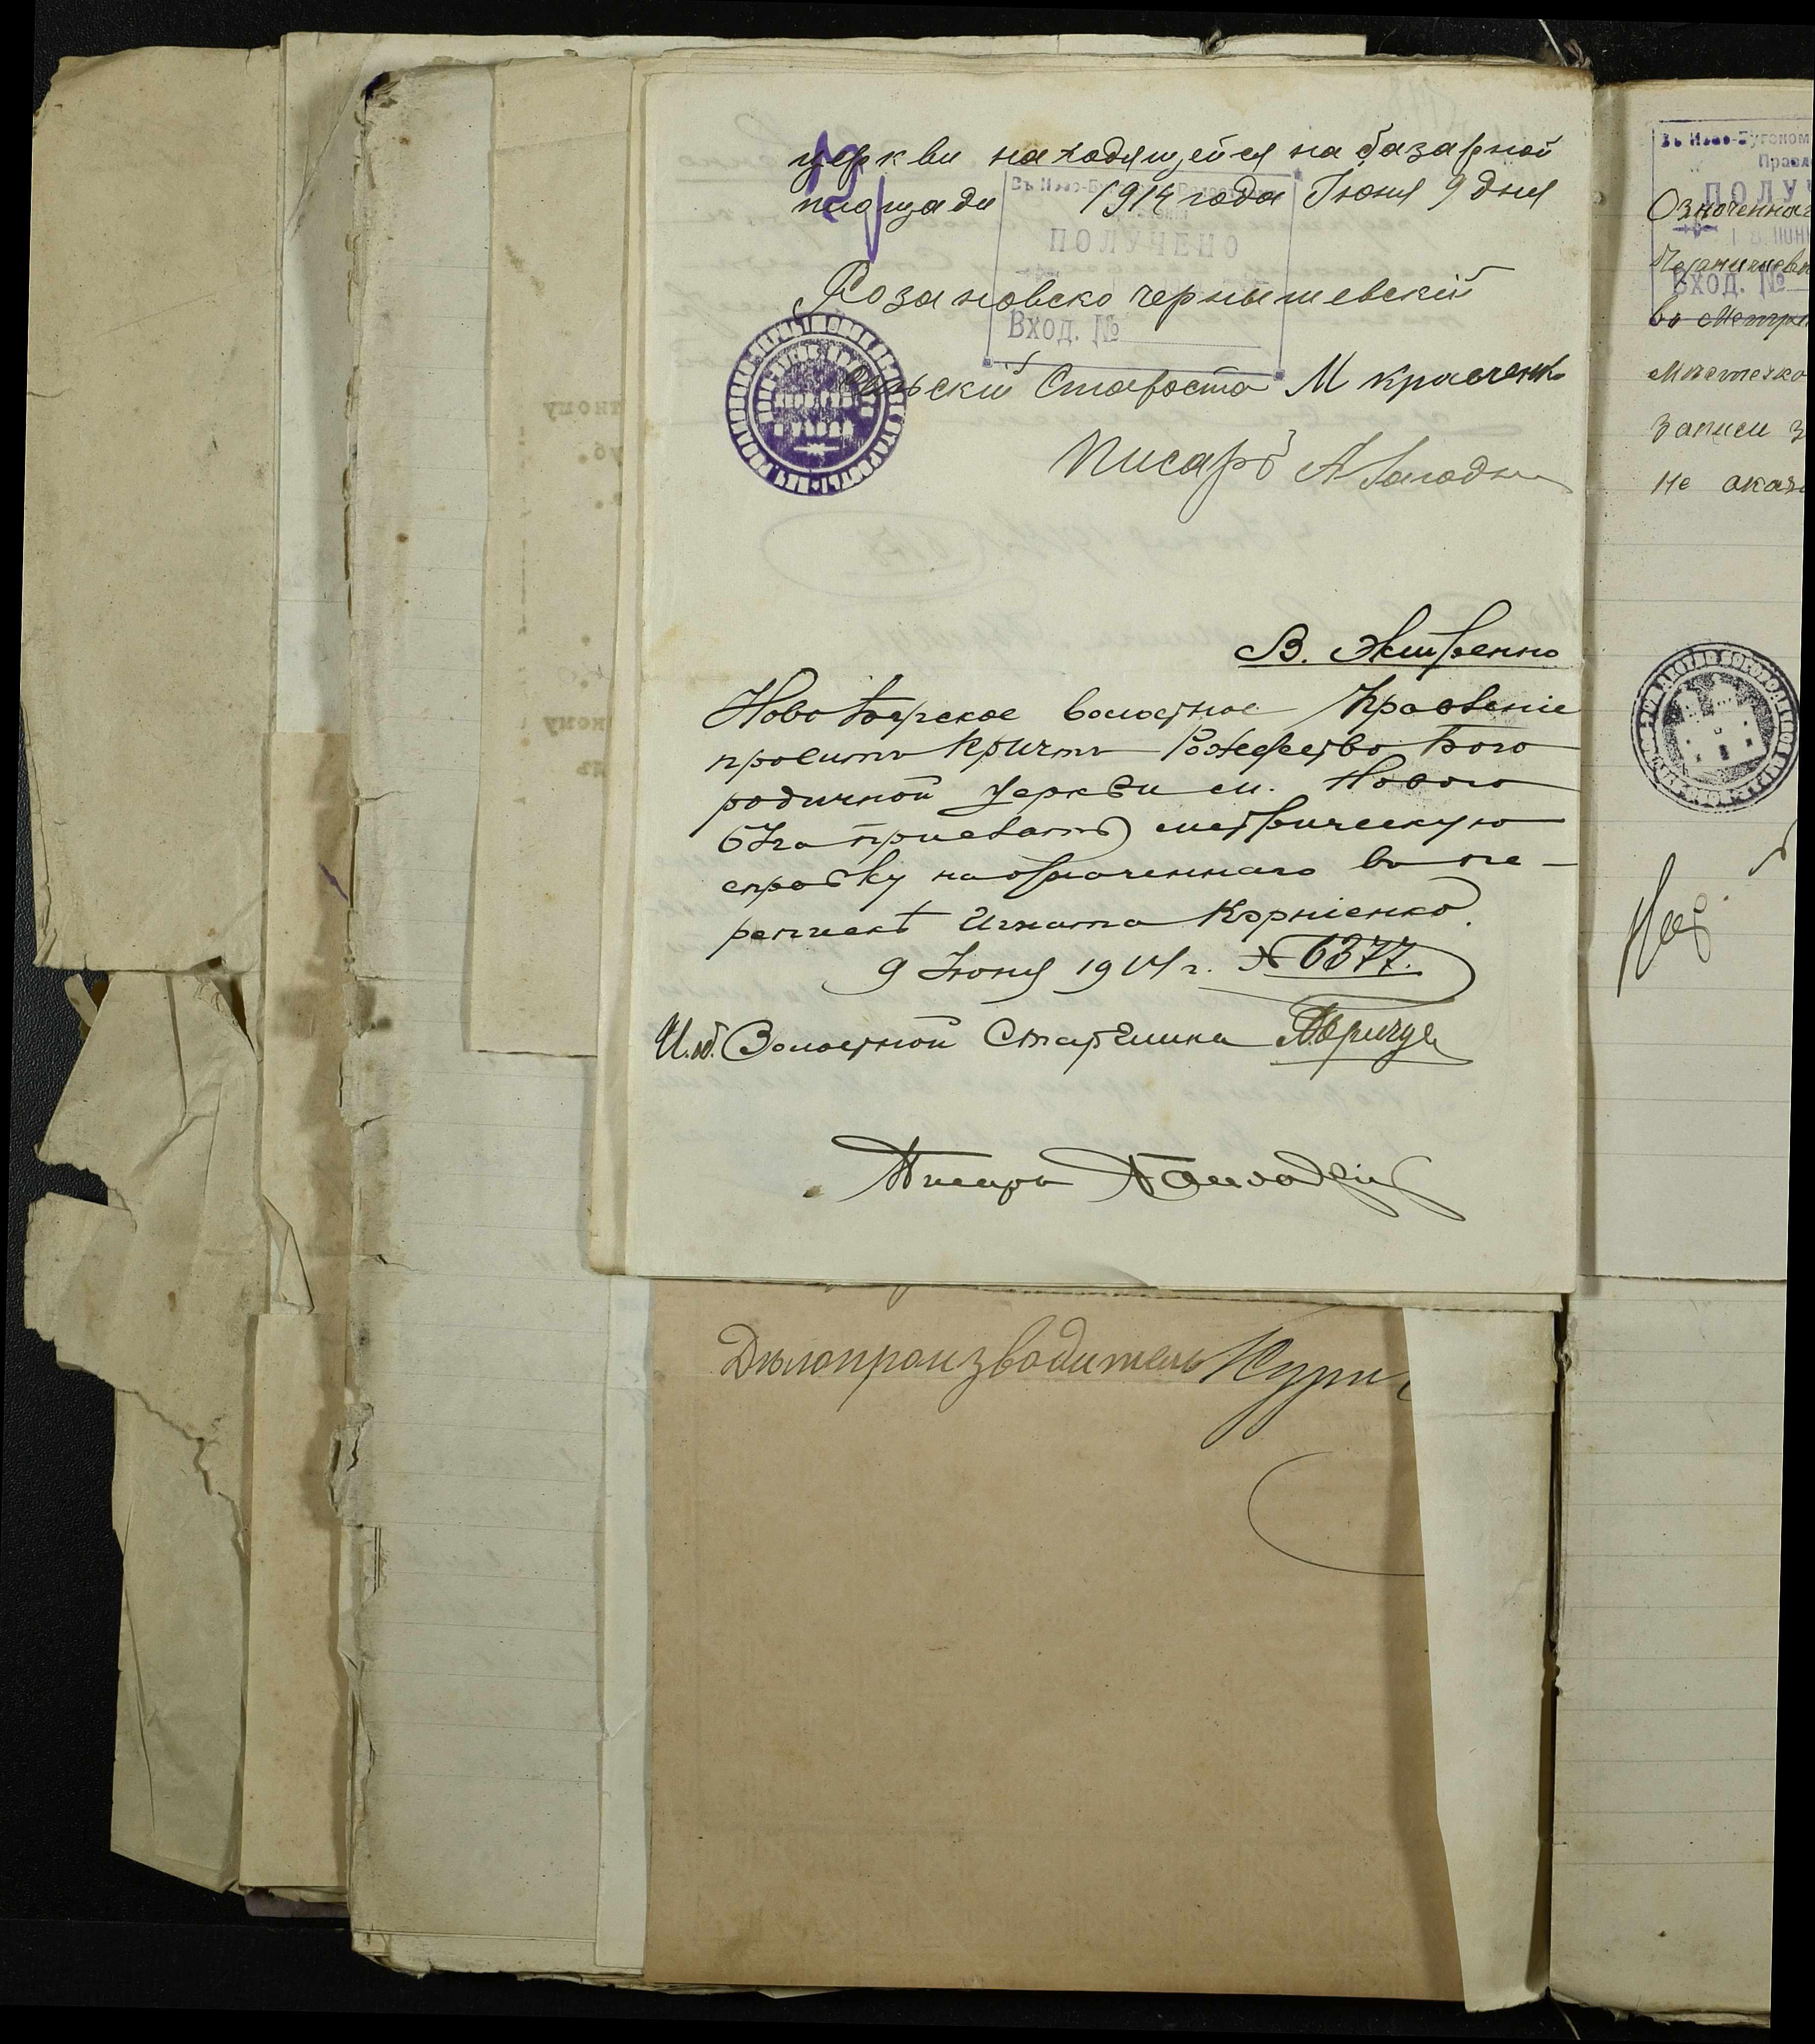 церкви находящейся на базарной
площади 1914 года Іюня 9 дня
ПОЛУЧЕНО
Вход. №
Розановско чернышевскій
сельскій Староста М кравченк
Писарь А
В. Экстренно
Ново Бугское волостное Правленіе
проситъ Причтъ Рождество Бого
родичной церкви м. Новаго
Буга прислать метрическую
справку на означеннаго въ пе-
репискѣ Игната Корніенко.
9 Іюня 1914 г. № 6377.
И.об. Волостной Старшина
Писарь
Дѣлопроизводитель
Въ Ново-Бугском
Правл
ПОЛУ
Означеннаг
Вход. №
во Метри
Мѣстечко
Записи з
не оказ